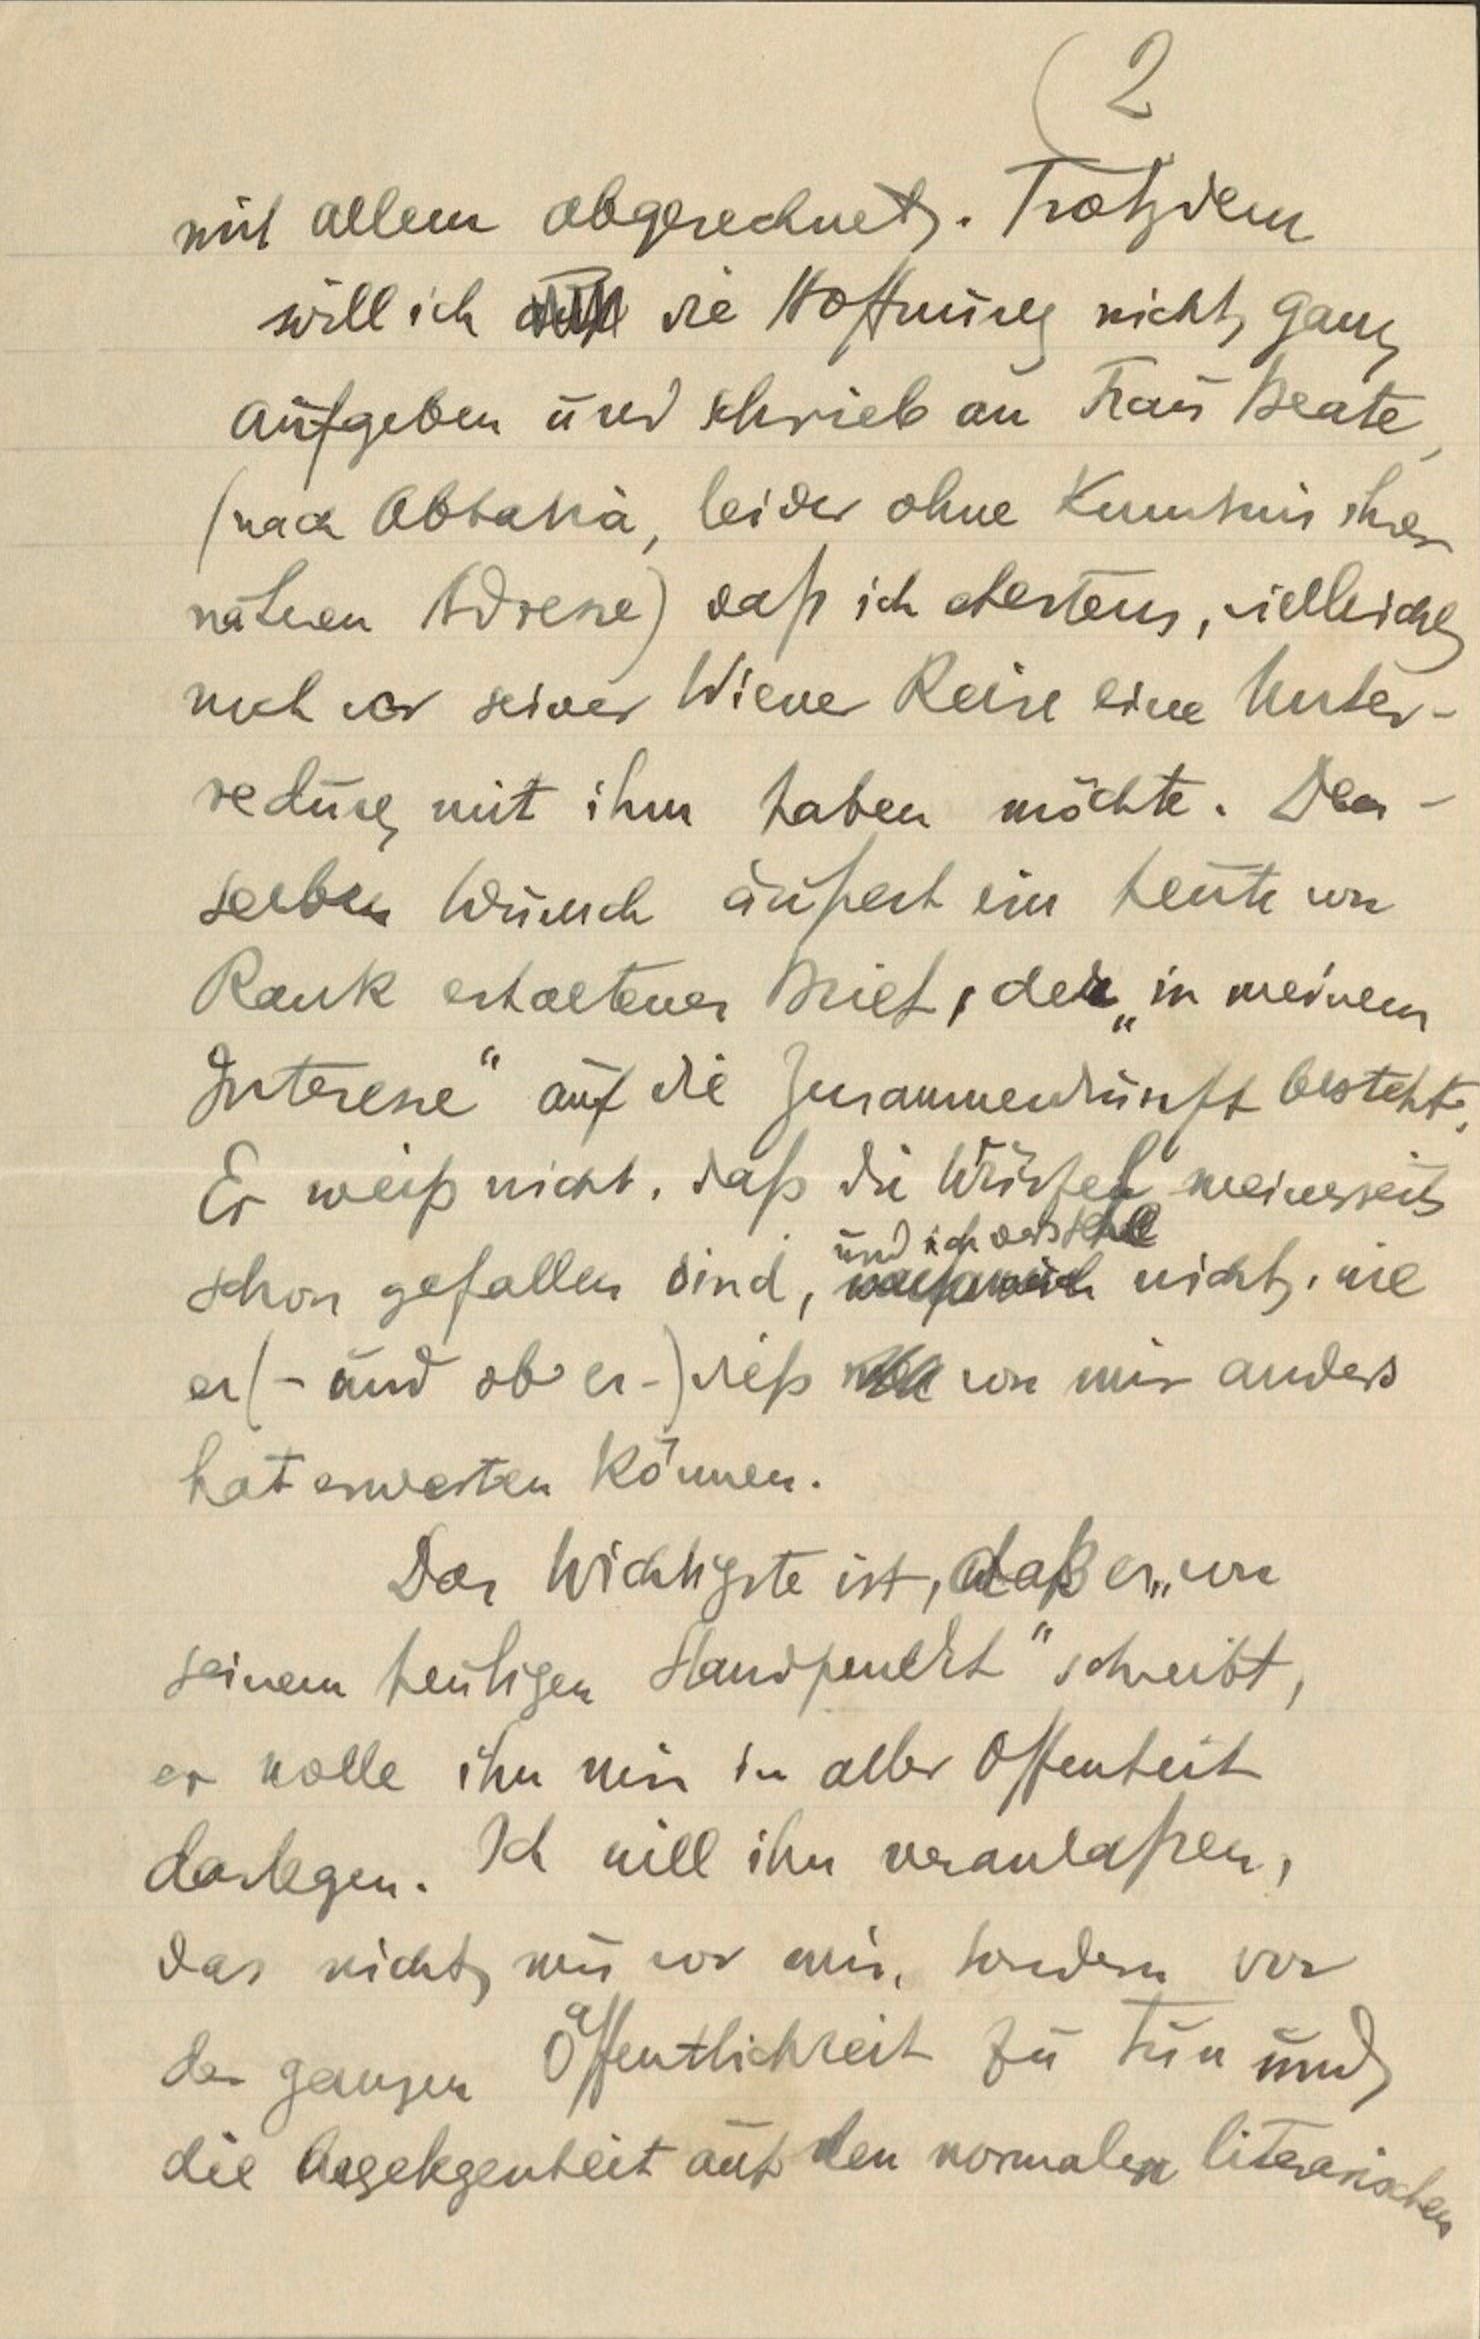 (2
mit allem abgerechnet. Trotzdem
will ich die Hoffnung nicht ganz
aufgeben und schrieb an Frau Beate,
(nach Abbazia, leider ohne Kenntnis ihrer
näheren Adresse) daß ich ehestens, vielleicht
noch vor seiner Wiener Reise eine Unter-
redung mit ihm haben möchte. Den-
selben Wunsch äußert ein heute von
Rank erhaltener Brief, der „in meinem
Interesse“ auf die Zusammenkunft besteht.
Er weiß nicht, daß die Würfel meinerseits
schon gefallen sind, und ich verstehe nicht, wie
er (- und ob er -) dieß von mir anders
hat erwarten können.
Das Wichtigste ist, daß er „von
seinem heutigen Standpunkt“ schreibt,
er wolle ihn mir in aller Offenheit
darlegen. Ich will ihn veranlaßen,
das nicht nur vor mir, sondern vor
der ganzen Öffentlichkeit zu tun und
die Angelegenheit auf den normalen literarischen